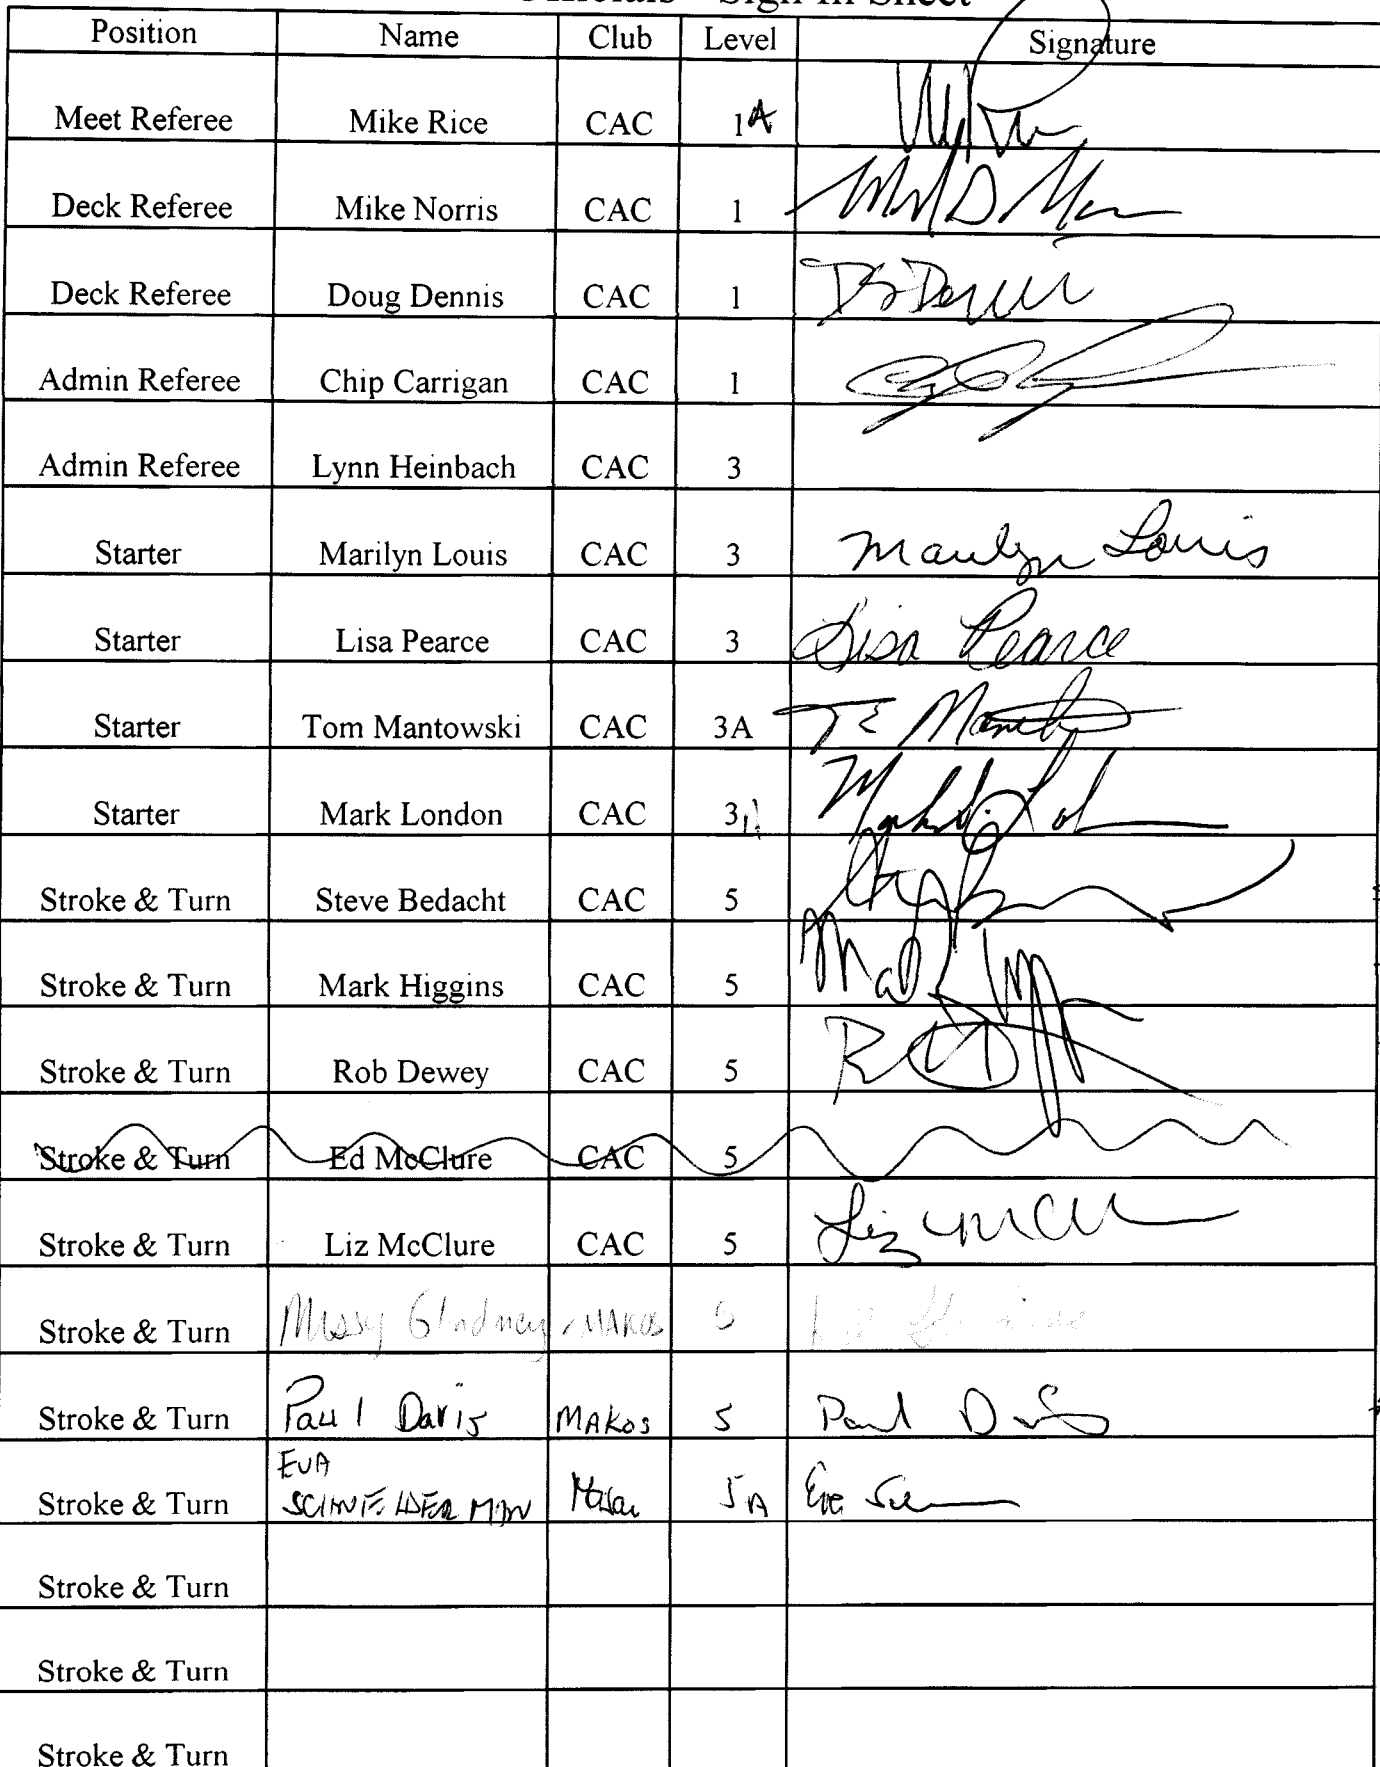 Officials - Sign In Sheet
Position Name Club Level Signature
Meet Referee Mike Rice CAC 1A
Deck Referee Mike Norris CAC 1
Deck Referee Doug Dennis CAC 1
Admin Referee Chip Carrigan CAC 1
Admin Referee Lynn Heinbach CAC 3
Starter Marilyn Louis CAC 3 Marilyn Louis
Starter Lisa Pearce CAC 3 Lisa Pearce
Starter Tom Mantowski CAC 3A
Starter Mark London CAC 3A
Stroke & Turn Steve Bedacht CAC 5
Stroke & Turn Mark Higgins CAC 5
Stroke & Turn Rob Dewey CAC 5
Stroke & Turn Ed McClure CAC 5
Stroke & Turn Liz McClure CAC 5 Liz
Stroke & Turn Missy Gladney MAKOS 5
Stroke & Turn Paul Davis MAKOS 5 Paul
EVA
Stroke & Turn 5A
Stroke & Turn
Stroke & Turn
Stroke & Turn